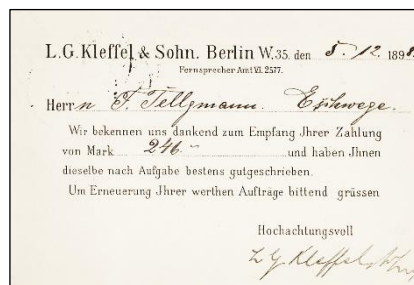 L.G. Kleffel & Sohn. Berlin W.35. den 5. 12. 189
Fernsprecher Amt VI. 2577.
Herrn F. Tellgmann. Eschwege.
Wir bekennen uns dankend zum Empfang Jhrer Zahlung
von Mark 246.– und haben Jhnen
dieselbe nach Aufgabe bestens gutgeschrieben.
Um Erneuerung Jhrer werthen Aufträge bittend grüssen
Hochachtungsvoll
L G Kleffel & Sohn